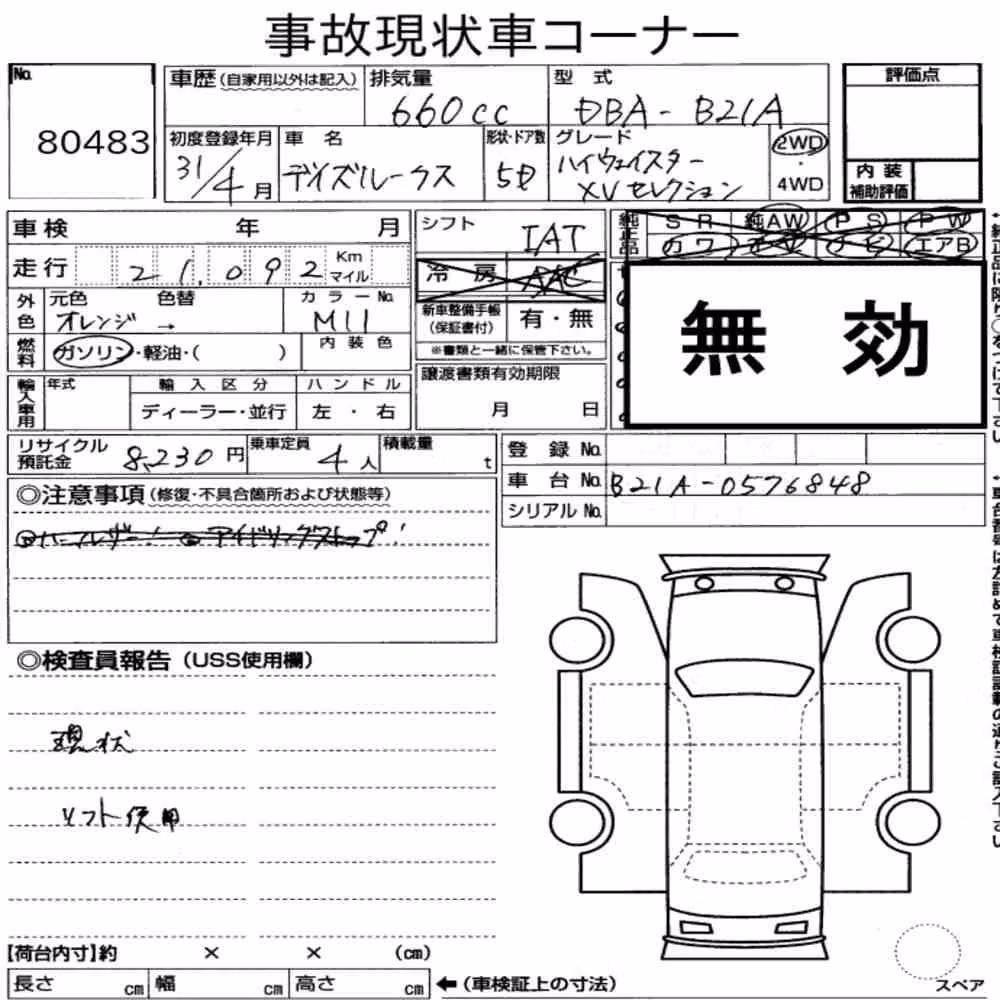 事故現状車コーナー
No. 80483
車歴 (自家用以外は記入)
排気量 660cc
型式 DBA-B21A
評価点
初度登録年月 31/4月
車名 デイズルークス
形状・ドア数 5D
グレード ハイウェイスター
XVセレクション
2WD・4WD
内装補助評価
車検 年 月
走行 21,092 Km マイル
外色 元色 オレンジ → 色替
カラーNo. M11
燃料 ガソリン・軽油・( )
内装色
輸入車用 年式
輸入区分 ディーラー・並行
ハンドル 左・右
シフト IAT
冷房 AAC
新車整備手帳(保証書付) 有・無
※書類と一緒に保管下さい。
譲渡書類有効期限
月 日
純正品 SR 純AW PS PW
カワ TV ナビ エアB
無効
リサイクル預託金 8,230円
乗車定員 4人
積載量 t
登録No.
車台No. B21A-0576848
シリアルNo.
◎注意事項 (修復・不具合箇所および状態等)
ハーフレザー! アイドリングストップ!
◎検査員報告 (USS使用欄)
現状
リフト使用
【荷台内寸】約 × × (cm)
長さ cm 幅 cm 高さ cm
←(車検証上の寸法)
スペア